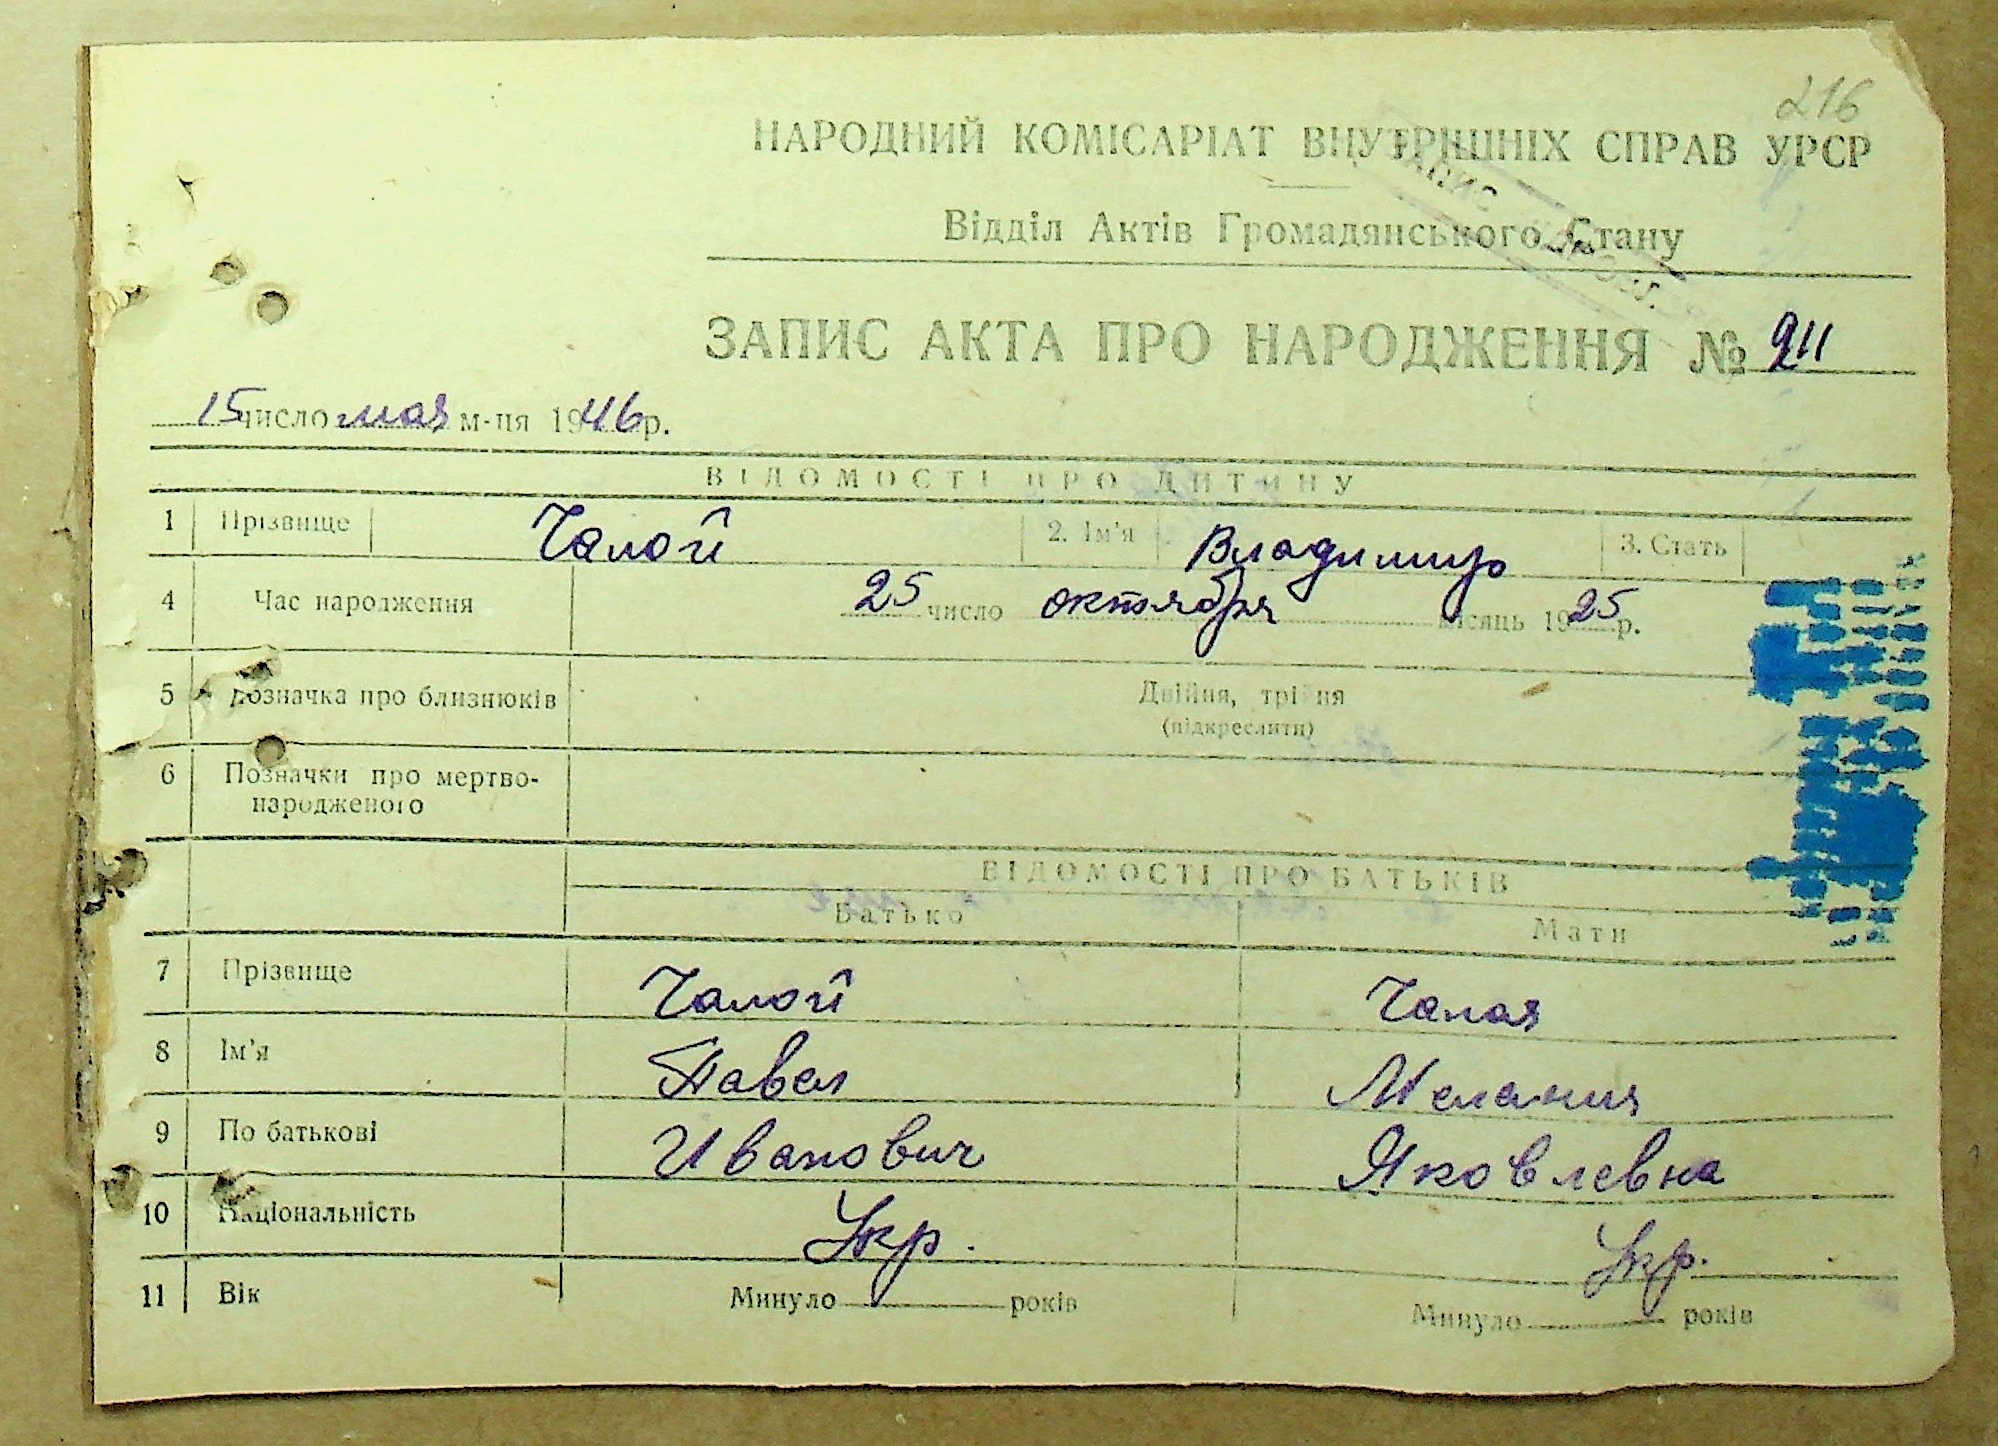 216
НАРОДНИЙ КОМІСАРІАТ ВНУТРІШНІХ СПРАВ УРСР
Відділ Актів Громадянського Стану
ЗАПИС АКТА ПРО НАРОДЖЕННЯ № 211
15 число мая м-ця 1946 р.
ВІДОМОСТІ ПРО ДИТИНУ
1 Прізвище Чалой 2. Ім'я Владимир 3. Стать
4 Час народження 25 число октября місяць 1925 р.
5 Позначка про близнюків Двійня, трійня
(підкреслити)
6 Позначки про мертво-
народженого
ВІДОМОСТІ ПРО БАТЬКІВ
Батько Мати
7 Прізвище Чалой Чалая
8 Ім'я Павел Мелания
9 По батькові Иванович Яковлевна
10 Національність Укр. Укр.
11 Вік Минуло років Минуло років